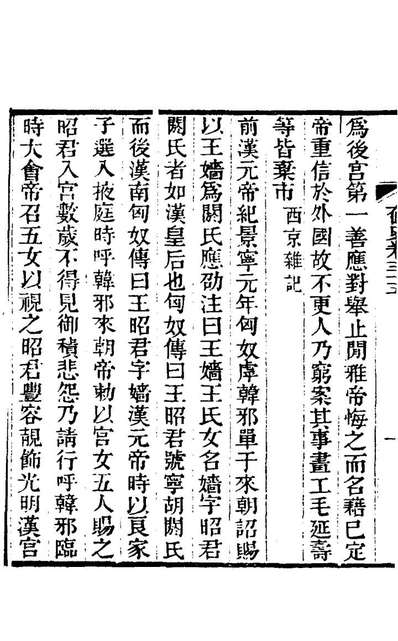 爲後宮第一善應對舉止閒雅帝悔之而名籍已定
帝重信於外國故不更人乃窮案其事畫工毛延壽
等皆棄市 西京雜記
前漢元帝紀景寧元年匈奴虖韓邪單于來朝詔賜
以王嬙爲閼氏應劭注曰王嬙王氏女名嬙字昭君
閼氏者如漢皇后也匈奴傳曰王昭君號寧胡閼氏
而後漢南匈奴傳曰王昭君字嬙漢元帝時以良家
子選入掖庭時呼韓邪來朝帝勅以宮女五人賜之
昭君入宮數歲不得見御積悲怨乃請行呼韓邪臨
時大會帝召五女以視之昭君豐容靚飾光明漢宮